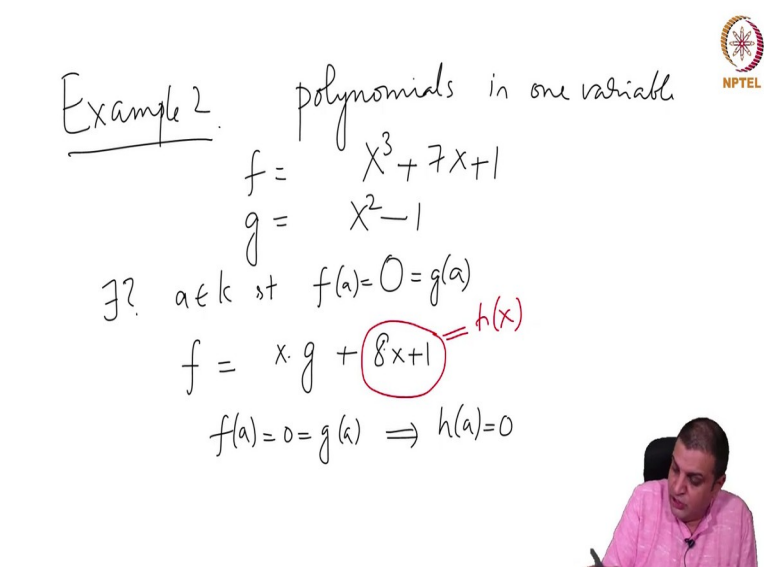 NPTEL
Example 2. polynomials in one variable
f = x³ + 7x + 1
g = x² - 1
∃? a ∈ k st f(a) = 0 = g(a)
f = x. g + 8x+1 = h(x)
f(a) = 0 = g(a) ⟹ h(a) = 0